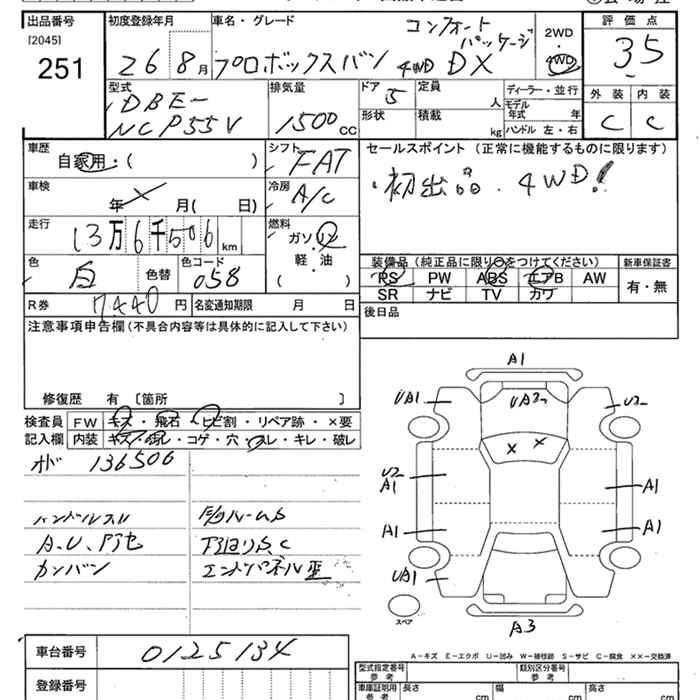 出品番号 初度登録年月 車名・グレード 評価点
[2045]
251
26 8月
コンフォート パッケージ
プロボックスバン 4WD DX
2WD
4WD
3.5
型式 排気量 ドア 定員 ディーラー・並行 外装 内装
DBE-
NCP55V
1500 CC
5
人
モデル
年式 年
形状 積載 kg ハンドル 左・右
C C
車歴 シフト セールスポイント (正常に機能するものに限ります)
自家用・( )
FAT
・初出品. 4WD!
車検 冷房
年 月( 日)
A/C
走行 燃料
13万6千506 km
ガソリン
軽・油
( )
色 色替 色コード
白 058
装備品(純正品に限り○をつけてください) 新車保証書
PS PW ABS エアB AW
SR ナビ TV カワ
有・無
R券 7440円 名変通知期限 月 日
後日品
注意事項申告欄(不具合内容等は具体的に記入して下さい)
修復歴 有 〔箇所 〕
検査員 FW キズ・飛石・ヒビ割・リペア跡・×要
記入欄 内装 キズ・汚レ・コゲ・穴・スレ・キレ・破レ
136506
ハンドルスレ
カンバン
A1
UA1
UA2
U2
X X
U2
A1
A1
A1
A1
UA1
A3
スペア
A-キズ E-エクボ U-凹み W-補修跡 S-サビ C-腐食 ××-交換済
車台番号 0125134
登録番号
型式指定番号
参考
類別区分番号
参考
車庫証明用
参考
長さ cm
幅 cm
高さ cm